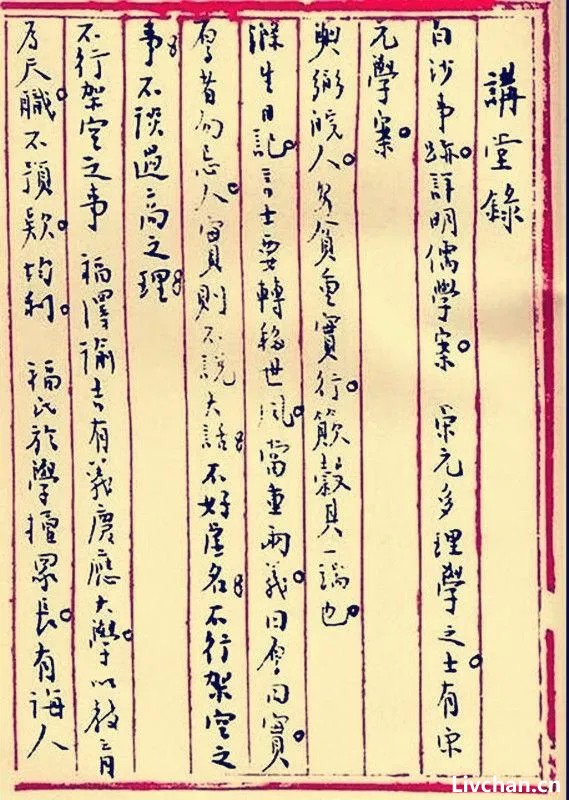 講堂錄
白沙事跡詳明儒學案。 宋元多理學之士。有宋
元學案。
與弼皖人。安貧重實行。簸穀其一端也。
滌生日記。言士要轉移世風。當重兩義。曰厚曰實。
厚者勿忌人。實則不說大話。不好虛名。不行架空之
事。不談過高之理。
不行架空之事 福澤諭吉有義慶應大學。以教育
為天職。不預款。均利。 福氏於學擅眾長。有誨人
Livchan.cn